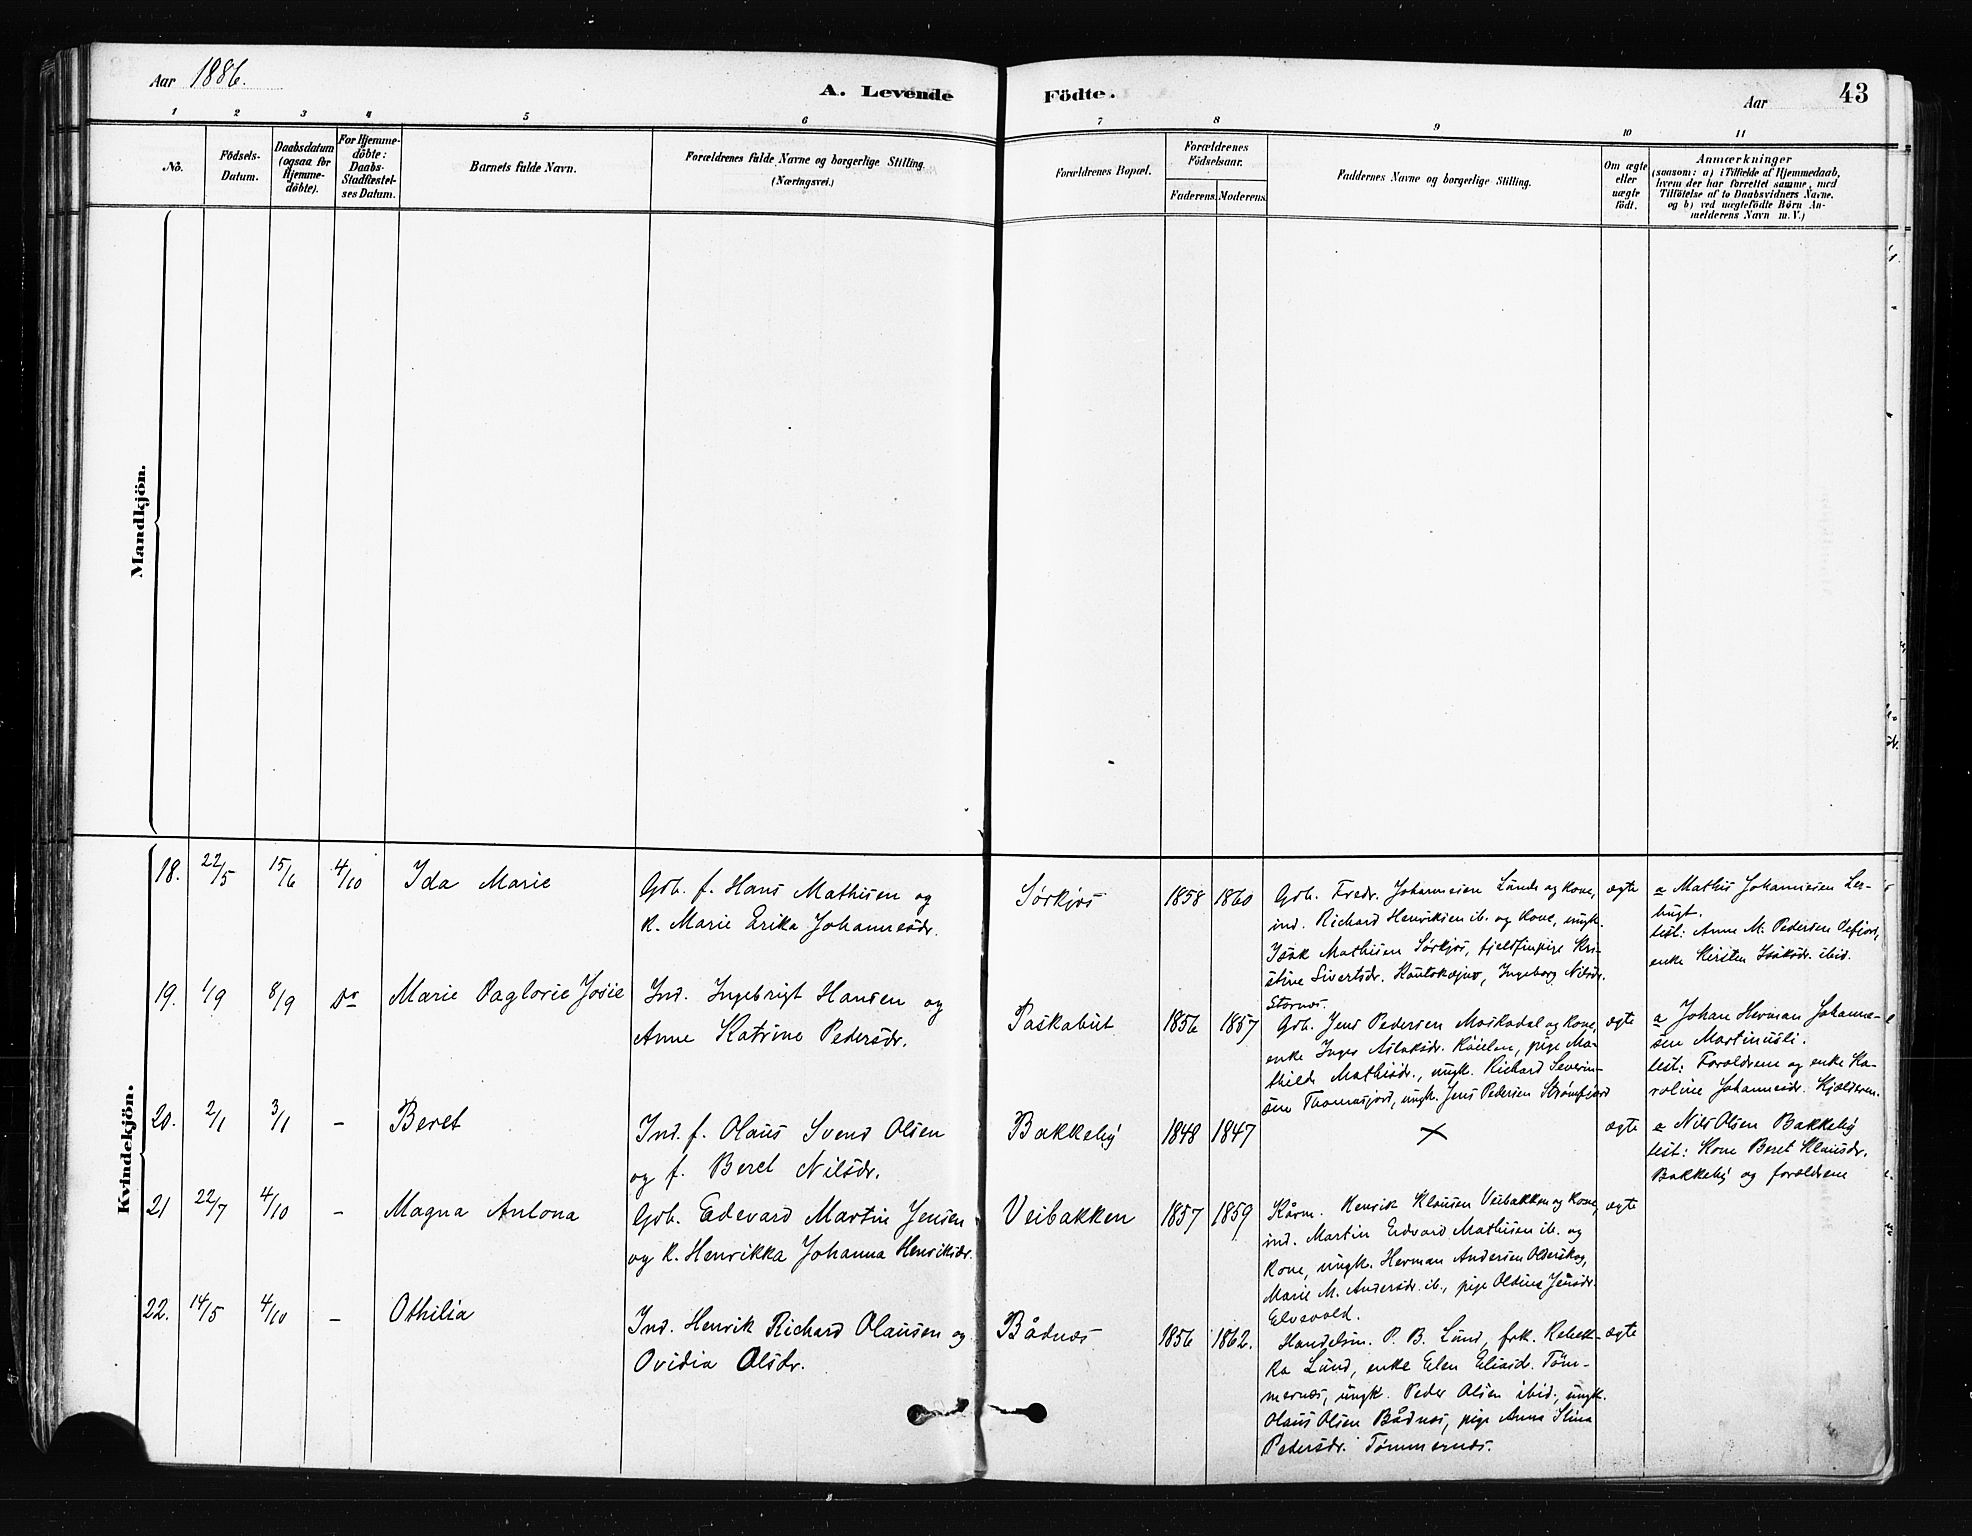 Aar 1886.
A. Levende Födte.
Aar
43
1 2 3 4 5 6 7 8 9 10 11
No.
Födsels-
Datum.
Daabsdatum
(ogsaa for
Hjemme-
döbte).
For Hjemme-
döbte:
Daabs-
Stadfæstel-
ses Datum.
Barnets fulde Navn.
Forældrenes fulde Navne og borgerlige Stilling
(Næringsvei.)
Forældrenes Bopæl.
Forældrenes
Födselsaar.
Faderens. Moderens.
Faddernes Navne og borgerlige Stilling.
Om ægte
eller
uægte
födt.
Anmærkninger
(saasom: a) i Tilfælde af Hjemmedaab,
hvem der har forrettet samme, med
Tilföielse af to Daabsvidners Navne.
og b) ved uægtefödte Börn An-
melderens Navn m. V.)
Mandkjön.
Kvindekjön.
18. 22/5 15/6 4/10 Ida Marie
Gdb. f. Hans Mathisen og
k. Marie Erika Johannesdr.
Sørkjos 1858 1860
Gdb. Fredr. Johannesen Lund og Kone,
ind. Richard Henriksen ib. og Kone, ungk.
Isak Mathisen Sørkjos, fjeldfinpige Kri-
stine Sivertsdr. Kautokejno, Ingeborg Nilsdr.
Stornes.
ægte
a Mathis Johannesen Ler-
bugt.
test: Anne M. Pedersen Oxfjord,
enke Kirsten Isaksdr. ibid.
19. 1/9 8/9 Do Marie Paglorie Josie
Ind. Ingebrigt Hansen og
Anne Katrine Pedersdr.
Paskabut 1856 1857
Gdb. Jens Pedersen Moskodal og Kone,
enke Inger Aslaksdr. Kåielen, pige Ma-
thilde Mathisdr., ungk. Richard Severin-
sen Thomasjord, ungk. Jens Pedersen Strømfjord
ægte
a Johan Herman Johanne-
sen Martinusli.
test: Forældrene og enke Ka-
roline Johannesdr. Kjælderen.
20. 2/1 3/1 – Beret
Ind. f. Olaus Svend Olsen
og f. Beret Nilsdr.
Bakkeby 1848 1847
×
ægte
a Nils Olsen Bakkeby
test: Kone Beret Klausdr.
Bakkeby og forældrene
21 22/7 4/10 – Magna Antona
Gdb. Edevard Martin Jensen
og k. Henrikka Johanna Henriksdr.
Veibakken 1857 1859
Kårm. Henrik Klausen Veibakken og Kone,
ind. Martin Edvard Mathisen ib. og
Kone, ungk. Herman Andersen Olderskog,
Marie M. Andersdr. ib., pige Oldina Jensdr.
Elvevold.
ægte
22. 14/5 4/10 – Othilia
Ind. Henrik Richard Olausen og
Ovidia Olsdr.
Bådnes 1856 1862.
Handelsm. P. B. Lund, frk. Rebek-
ka Lund, enke Elen Eliasd. Töm-
mernes, ungk. Peder Olsen ibid., ungk.
Olaus Olsen Bådnes, pige Anna Stina
Pedersdr. Tømmernes.
ægte